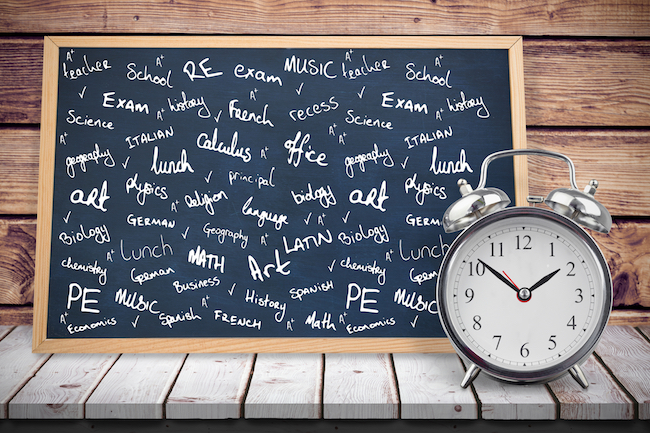 A+ teacher School A+ RE exam MUSIC A+ teacher School A+
Exam A+ history French A+ recess Exam A+ history
A+ Science ITALIAN Calculus A+ office A+ Science ITALIAN
A+ geography lunch A+ principal A+ geography lunch
art physics A+ Religion language biology art physics
GERMAN A+ Geography A+ LATIN GERMAN
Biology Lunch MATH Art Biology Lunch
chemistry German Business A+ SPANISH chemistry German
PE MUSIC A+ History PE MUSIC
A+ Economics Spanish FRENCH A+ Math A+ Economics Spanish
12
11 1
10 2
9 3
8 4
7 5
6